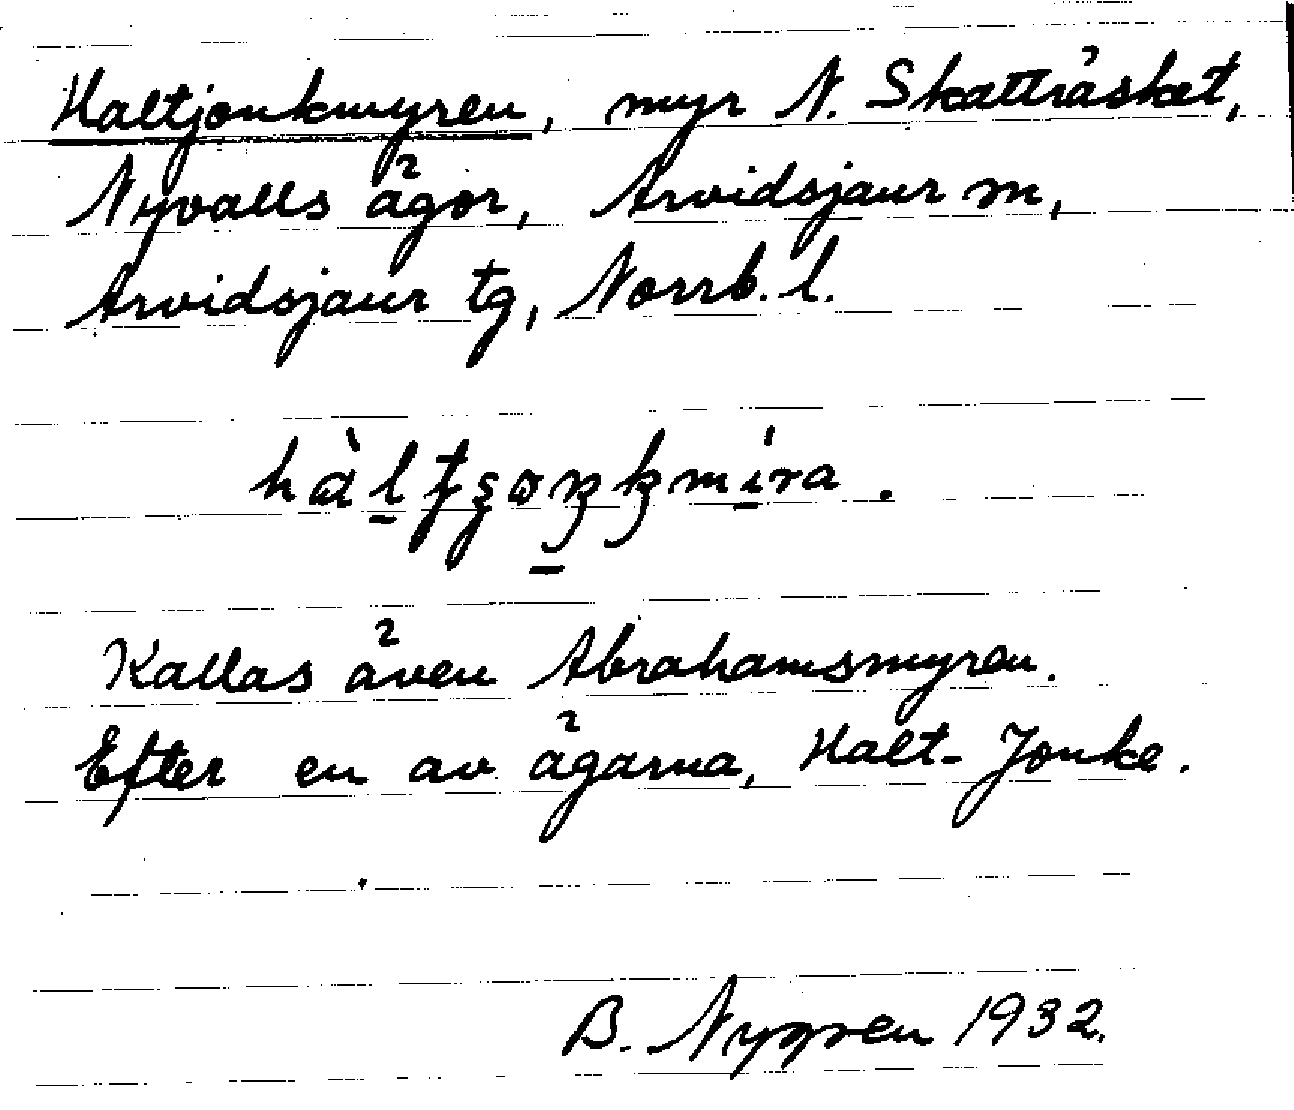 Haltjonkmyren, myr N. Skatträsket,
Nyvalls ägor, Arvidsjaur sn,
Arvidsjaur tg, Norrb. l.
Kallas även Abrahamsmyren.
Efter en av ägarna, Halt-Jonke.
B. Nygren 1932.